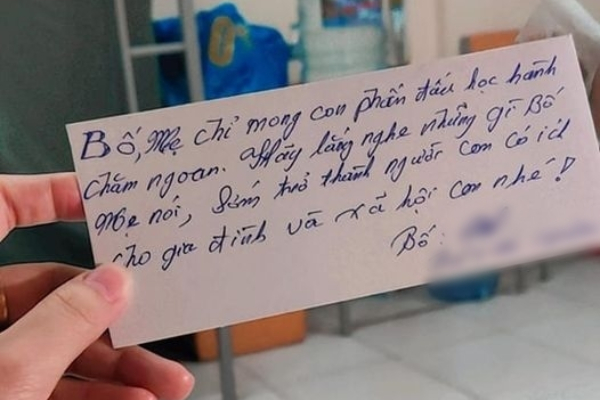 Bố, Mẹ chỉ mong con phấn đấu học hành
chăm ngoan. Hãy lắng nghe những gì Bố
Mẹ nói, Sớm trở thành người con có ích
cho gia đình và xã hội con nhé!
Bố: